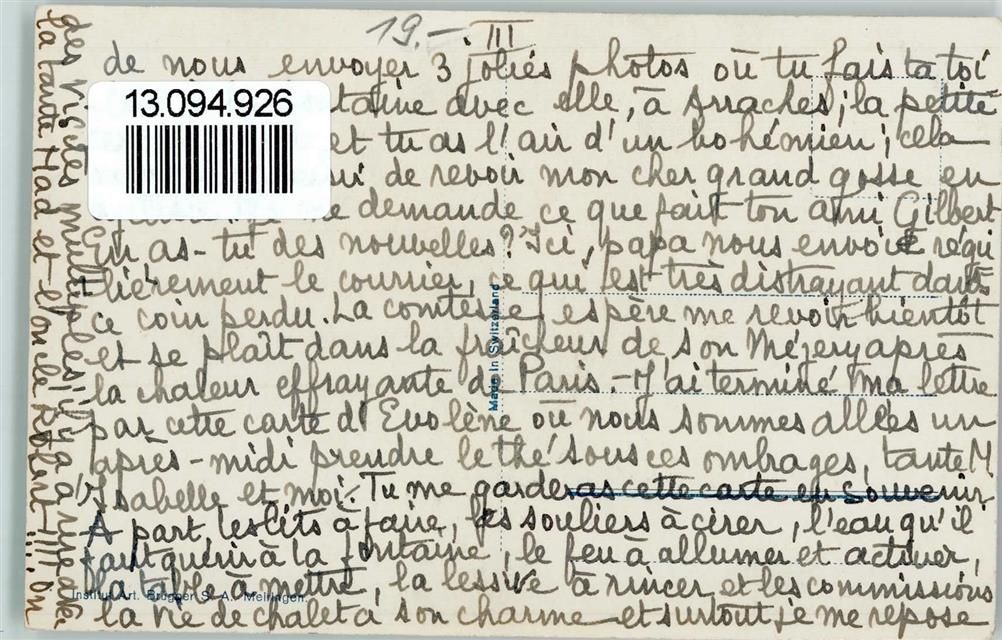 19.-. III
de nous envoyer 3 jolies photos où tu fais ta toi
taine avec elle, à Arraches; la petite
et tu as l'air d'un bohémien; cela
de revoir mon cher grand gosse en
me demande ce que fait ton ami Gilbert.
En as-tu des nouvelles? Ici, papa nous envoie régu
lièrement le courrier, ce qui est très distrayant dans
ce coin perdu. La comtesse espère me revoir bientôt
et se plaît dans la fraîcheur de son Mézery après
la chaleur effrayante de Paris.-J'ai terminé ma lettre
par cette carte d'Evolène où nous sommes allées un
après-midi prendre le thé sous ces ombrages, tante M.
Isabelle et moi. Tu me garderas cette carte en souvenir
A part, les lits à faire, les souliers à cirer, l'eau qu'il
faut quérir à la fontaine, le feu à allumer et activer,
la table à mettre, la lessive à rincer et les commissions
la vie de chalet a son charme et surtout, je me repose
des multiples; il y a
la tante Mad et l'oncle Roland-!!!! on
13.094.926
Made in Switzerland
Institut Art. Brügger S. A., Meiringen.